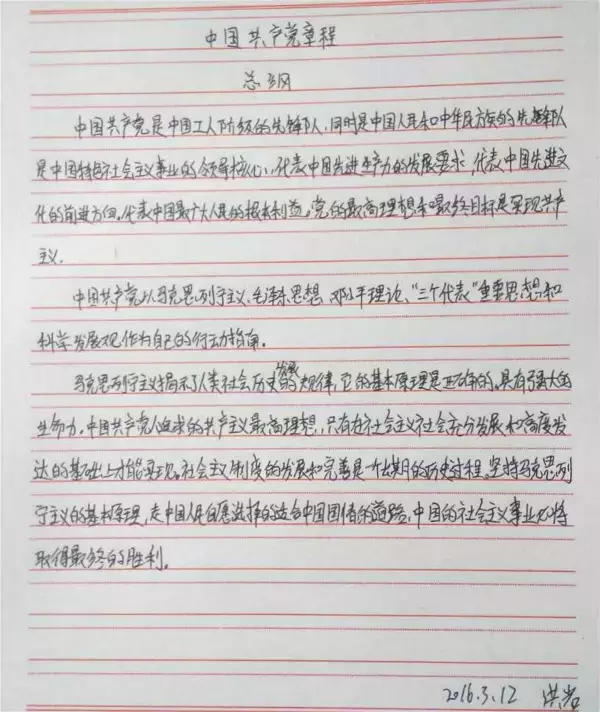 中国共产党章程
总纲
中国共产党是中国工人阶级的先锋队,同时是中国人民和中华民族的先锋队
是中国特色社会主义事业的领导核心,代表中国先进生产力的发展要求,代表中国先进文
化的前进方向,代表中国最广大人民的根本利益。党的最高理想和最终目标是实现共产
主义.
中国共产党以马克思列宁主义、毛泽东思想、邓小平理论、“三个代表”重要思想和
科学发展观作为自己的行动指南。
马克思列宁主义揭示了人类社会历史发展的规律,它的基本原理是正确的,具有强大的
生命力。中国共产党人追求的共产主义最高理想,只有在社会主义社会充分发展和高度发
达的基础上才能实现。社会主义制度的发展和完善是一个长期的历史过程。坚持马克思列
宁主义的基本原理,走中国人民自愿选择的适合中国国情的道路,中国的社会主义事业必将
取得最终的胜利。
2016.3.12